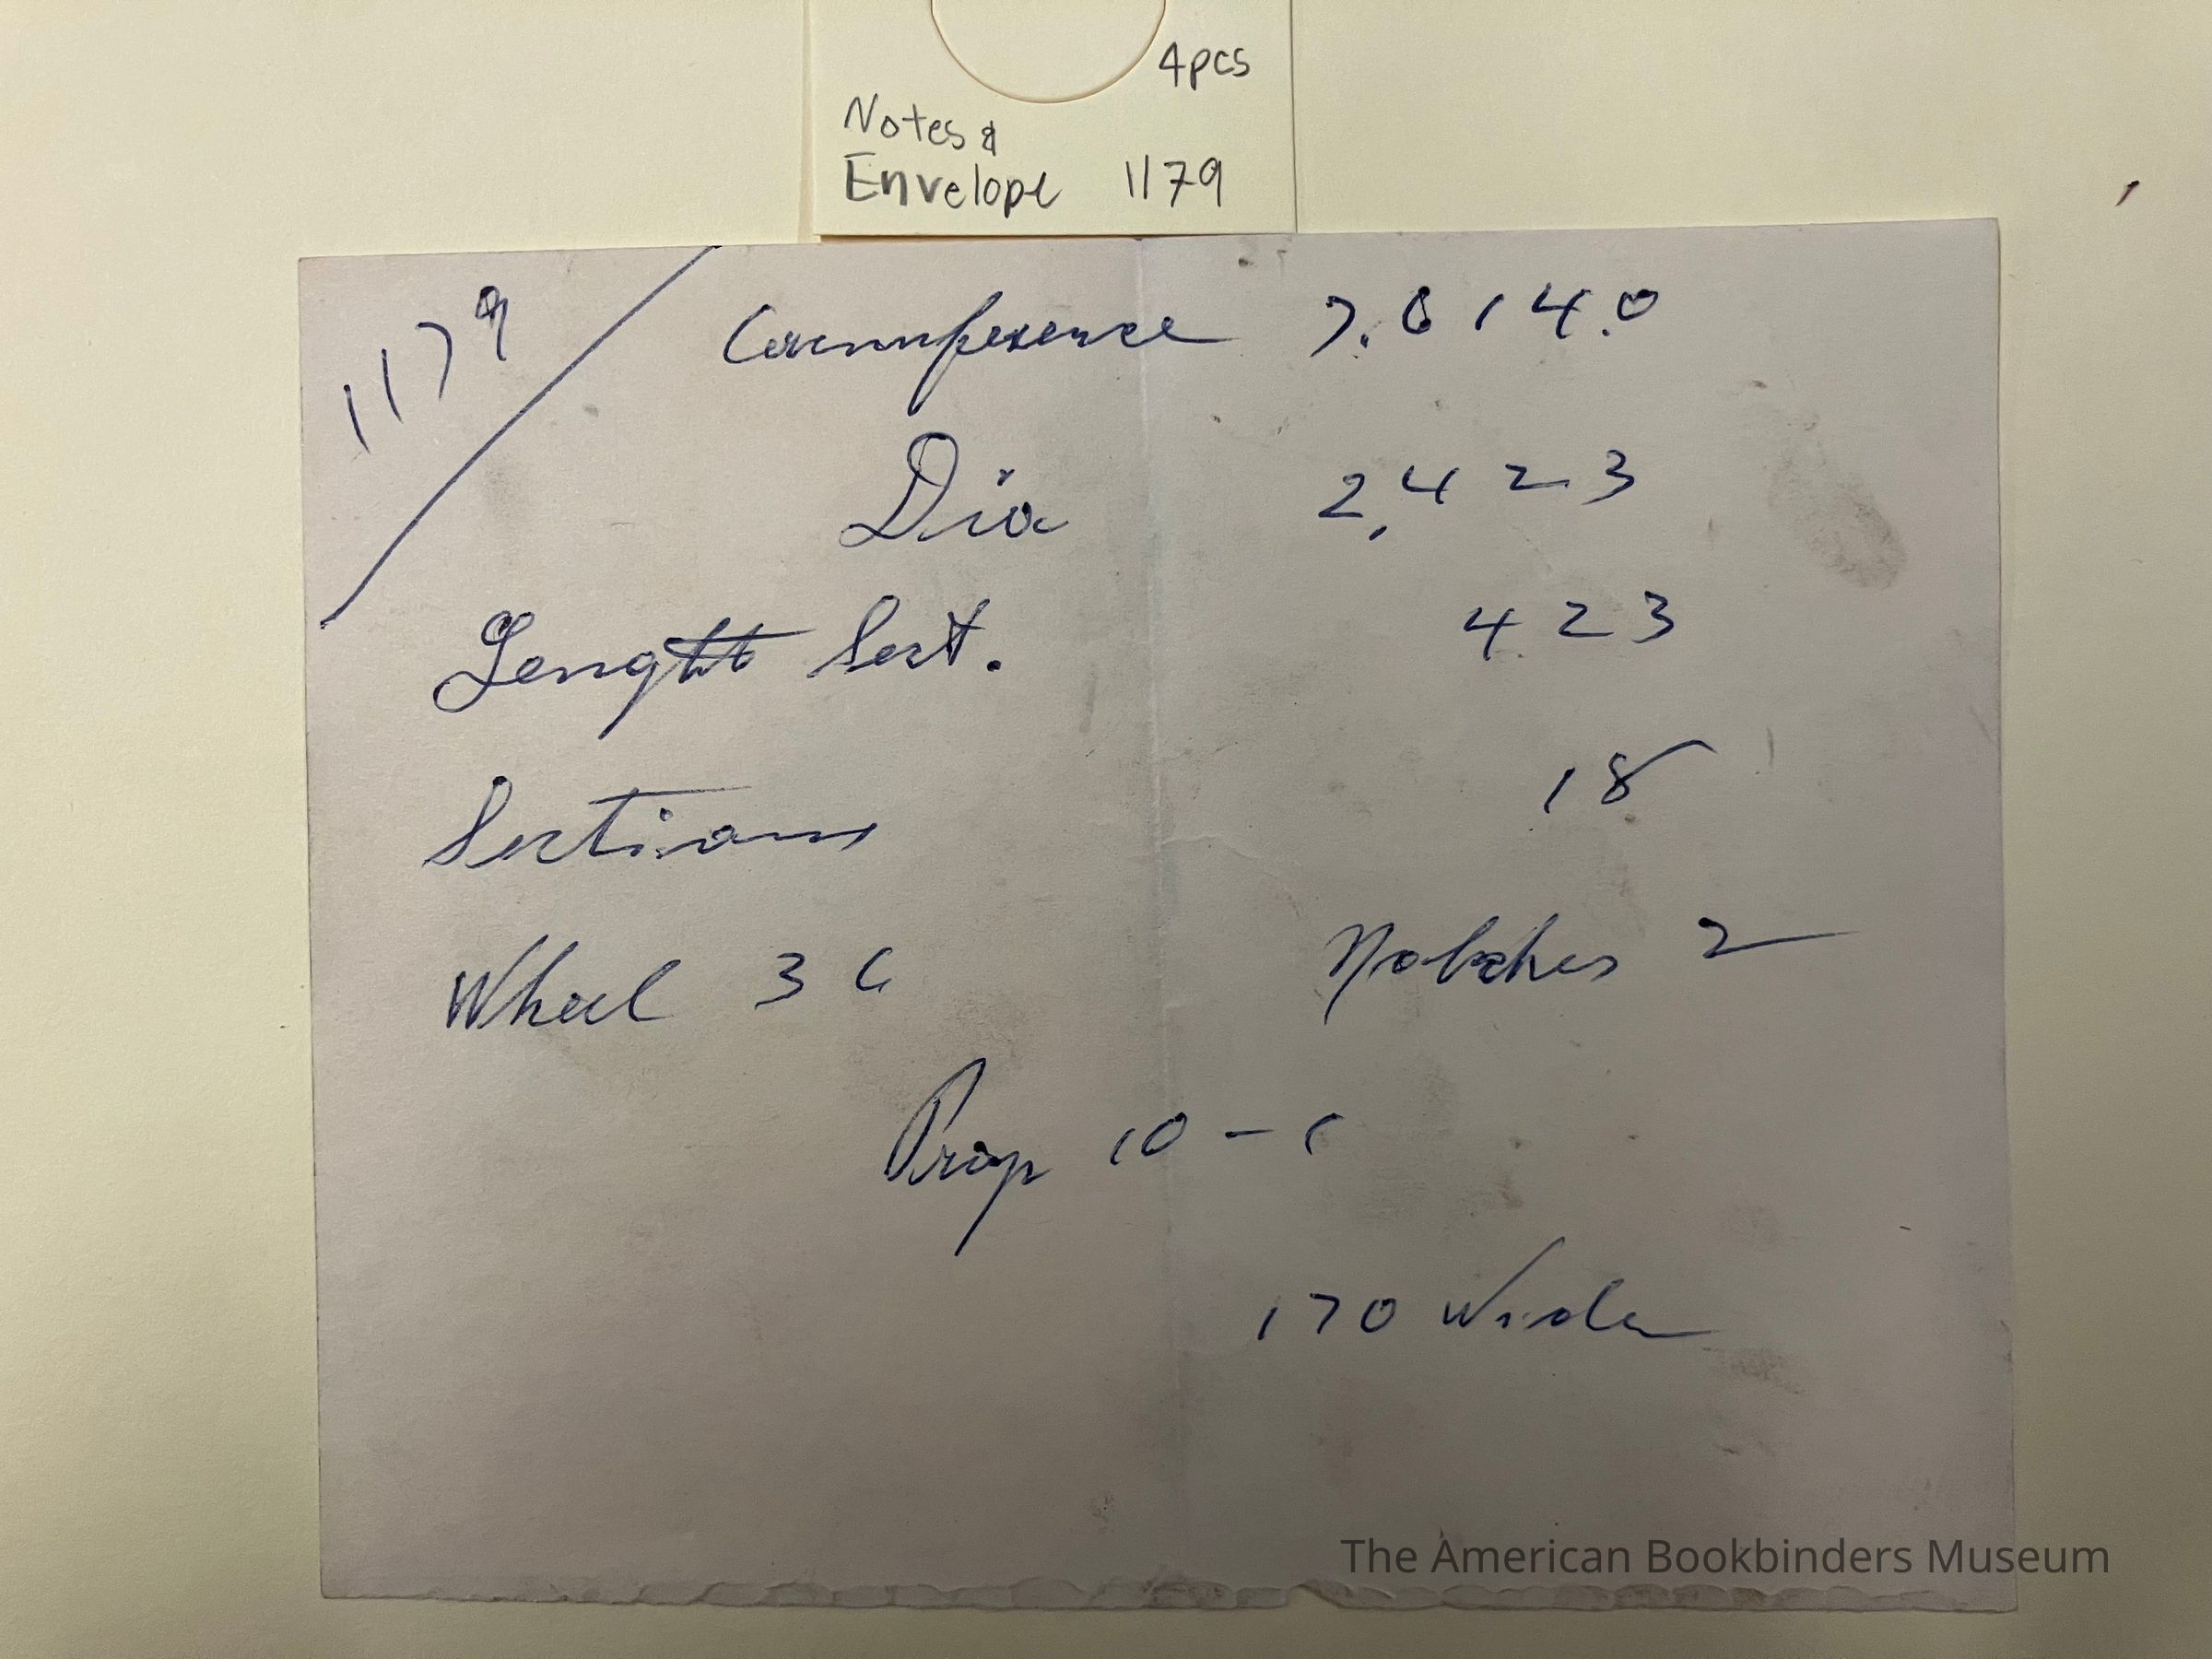 4pcs
Notes &
Envelope 1179
1179
Circumference 7.6140
Dia 2,423
Lenght Sect. 423
Sections 18
Wheel 36 Notches 2
Prop 10-1
170 Wide
The American Bookbinders Museum